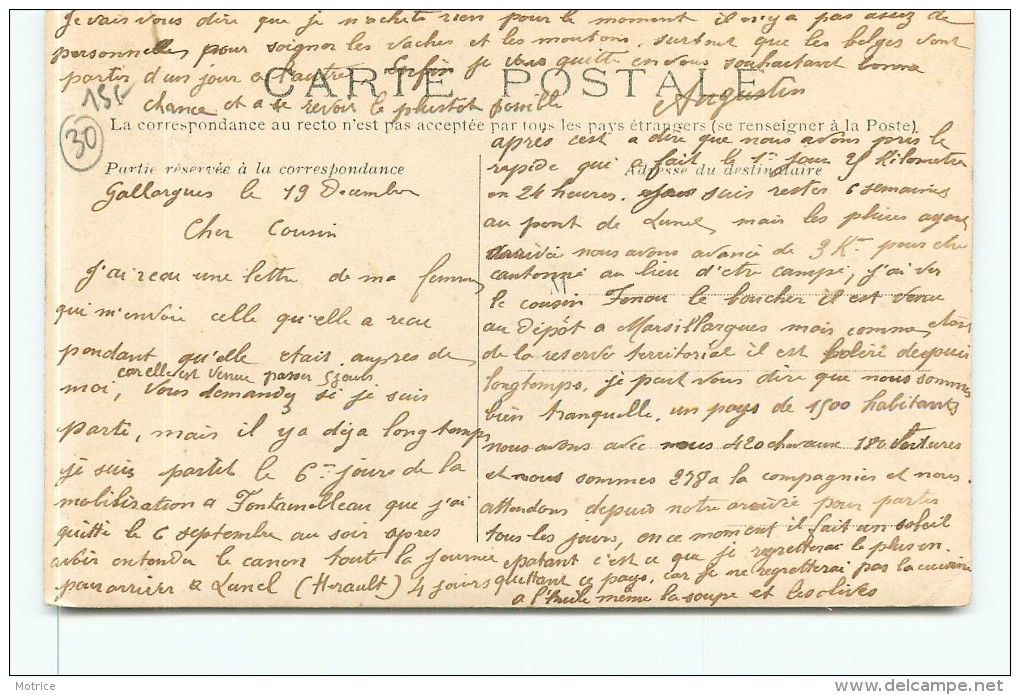 Je vais vous dire que je n'achete rien pour le moment il n'y a pas assez de
personnelles pour soigner les vaches et les moutons, surtout que les belges vont
partir d'un jour a l'autre. Enfin je vous quitte en vous souhaitant bonne
chance et a se revoir le plustot possible
Augustin
15f
30
CARTE POSTALE
La correspondance au recto n'est pas acceptée par tous les pays étrangers (se renseigner à la Poste).
Partie réservée à la correspondance
Adresse du destinataire
M
Gallargues le 19 Decembre
Cher Cousin
J'ai recu une lettre de ma femme
qui m'envoie celle qu'elle a recu
pendant qu'elle etait aupres de
car elle est venue passer 5 jours
moi, vous demandez si je suis
parti, mais il y a deja longtemps
je suis partit le 6me jours de la
mobilisation a Fontainebleau que j'ai
quitté le 6 septembre au soir apres
avoir entendu le canon toute la journée
pour arriver a Lunel (Herault) 4 jours
apres c'est a dire que nous avons pris le
rapide qui a fait le 1er jour 25 kilometre
en 24 heures. suis rester 6 semaines
au pont de Lunel, mais les pluies ayant
arrivée nous avons avancé de 3 Km pour etre
cantonné au lieu d'etre campé, j'ai vu
le cousin Fenou le boucher il est venu
au Dépôt a Marsillargues mais comme etant
de la reserve territorial il est depuis
longtemps, je peut vous dire que nous sommes
bien tranquelle, un pays de 1500 habitants
nous avons avec nous 420 chevaux 180 voitures
et nous sommes 278 a la compagnies et nous
attendons depuis notre arrivée pour partir
tous les jours, en ce moment il fait un soleil
epatant c'est ce que je regretterai le plus en
quittant ce pays, car je ne regretterai pas la cuisine
a l'huile même la soupe et les olives
Motrice
delcampe.net